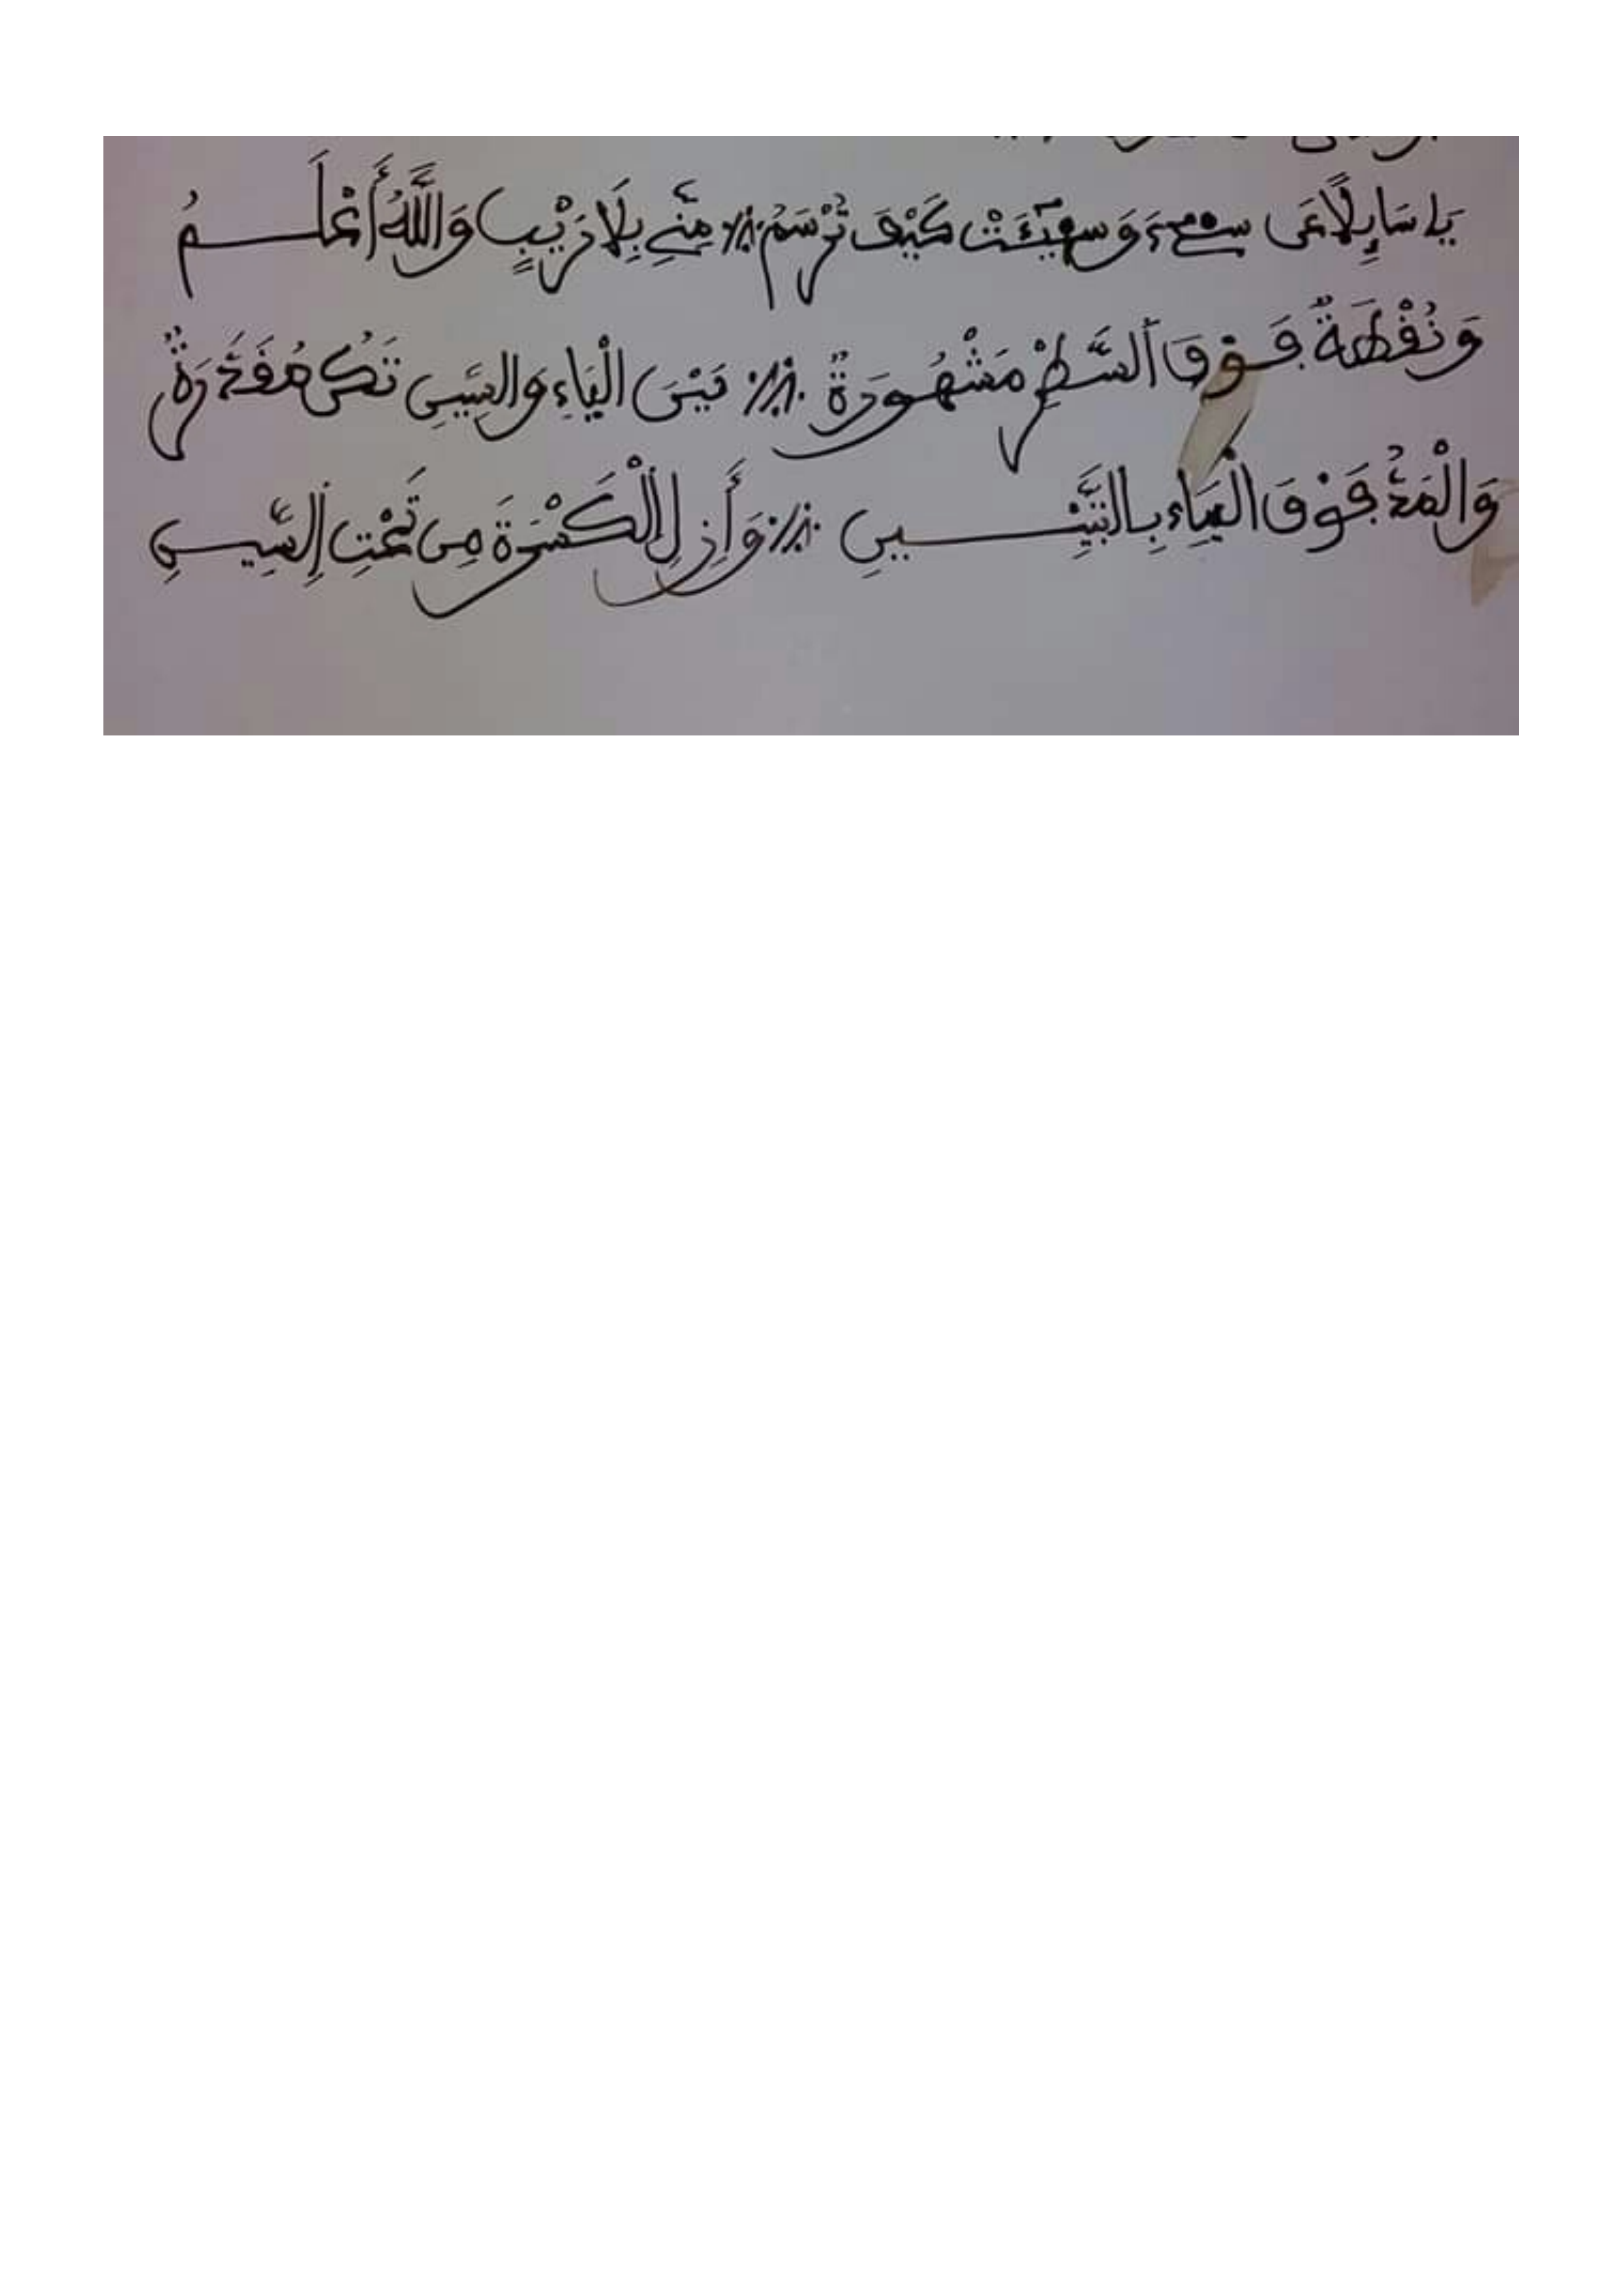 يَا سَايِلًا عَن سِےٓءَ وَسِيٓـَٔتْ كَيْفَ تُرْسَمُ ∴ مِنِّے بِلَا رَيْبٍ وَاللَّهُ أَعْلَـــمُ
وَنُقْطَةٌ فَوْقَ السَّطْرِ مَشْهُورَةٌ ∴ بَيْنَ الْيَاءِ وَالسِّينِ تَكُن مُقَدَّرَةٌ
وَالْمَدُّ فَوْقَ الْيَاءِ بِالتَّبْيِـــيـنِ ∴ وَأَزِلِ الْكَسْرَةَ مِن تَحْتِ السِّيـــنِ